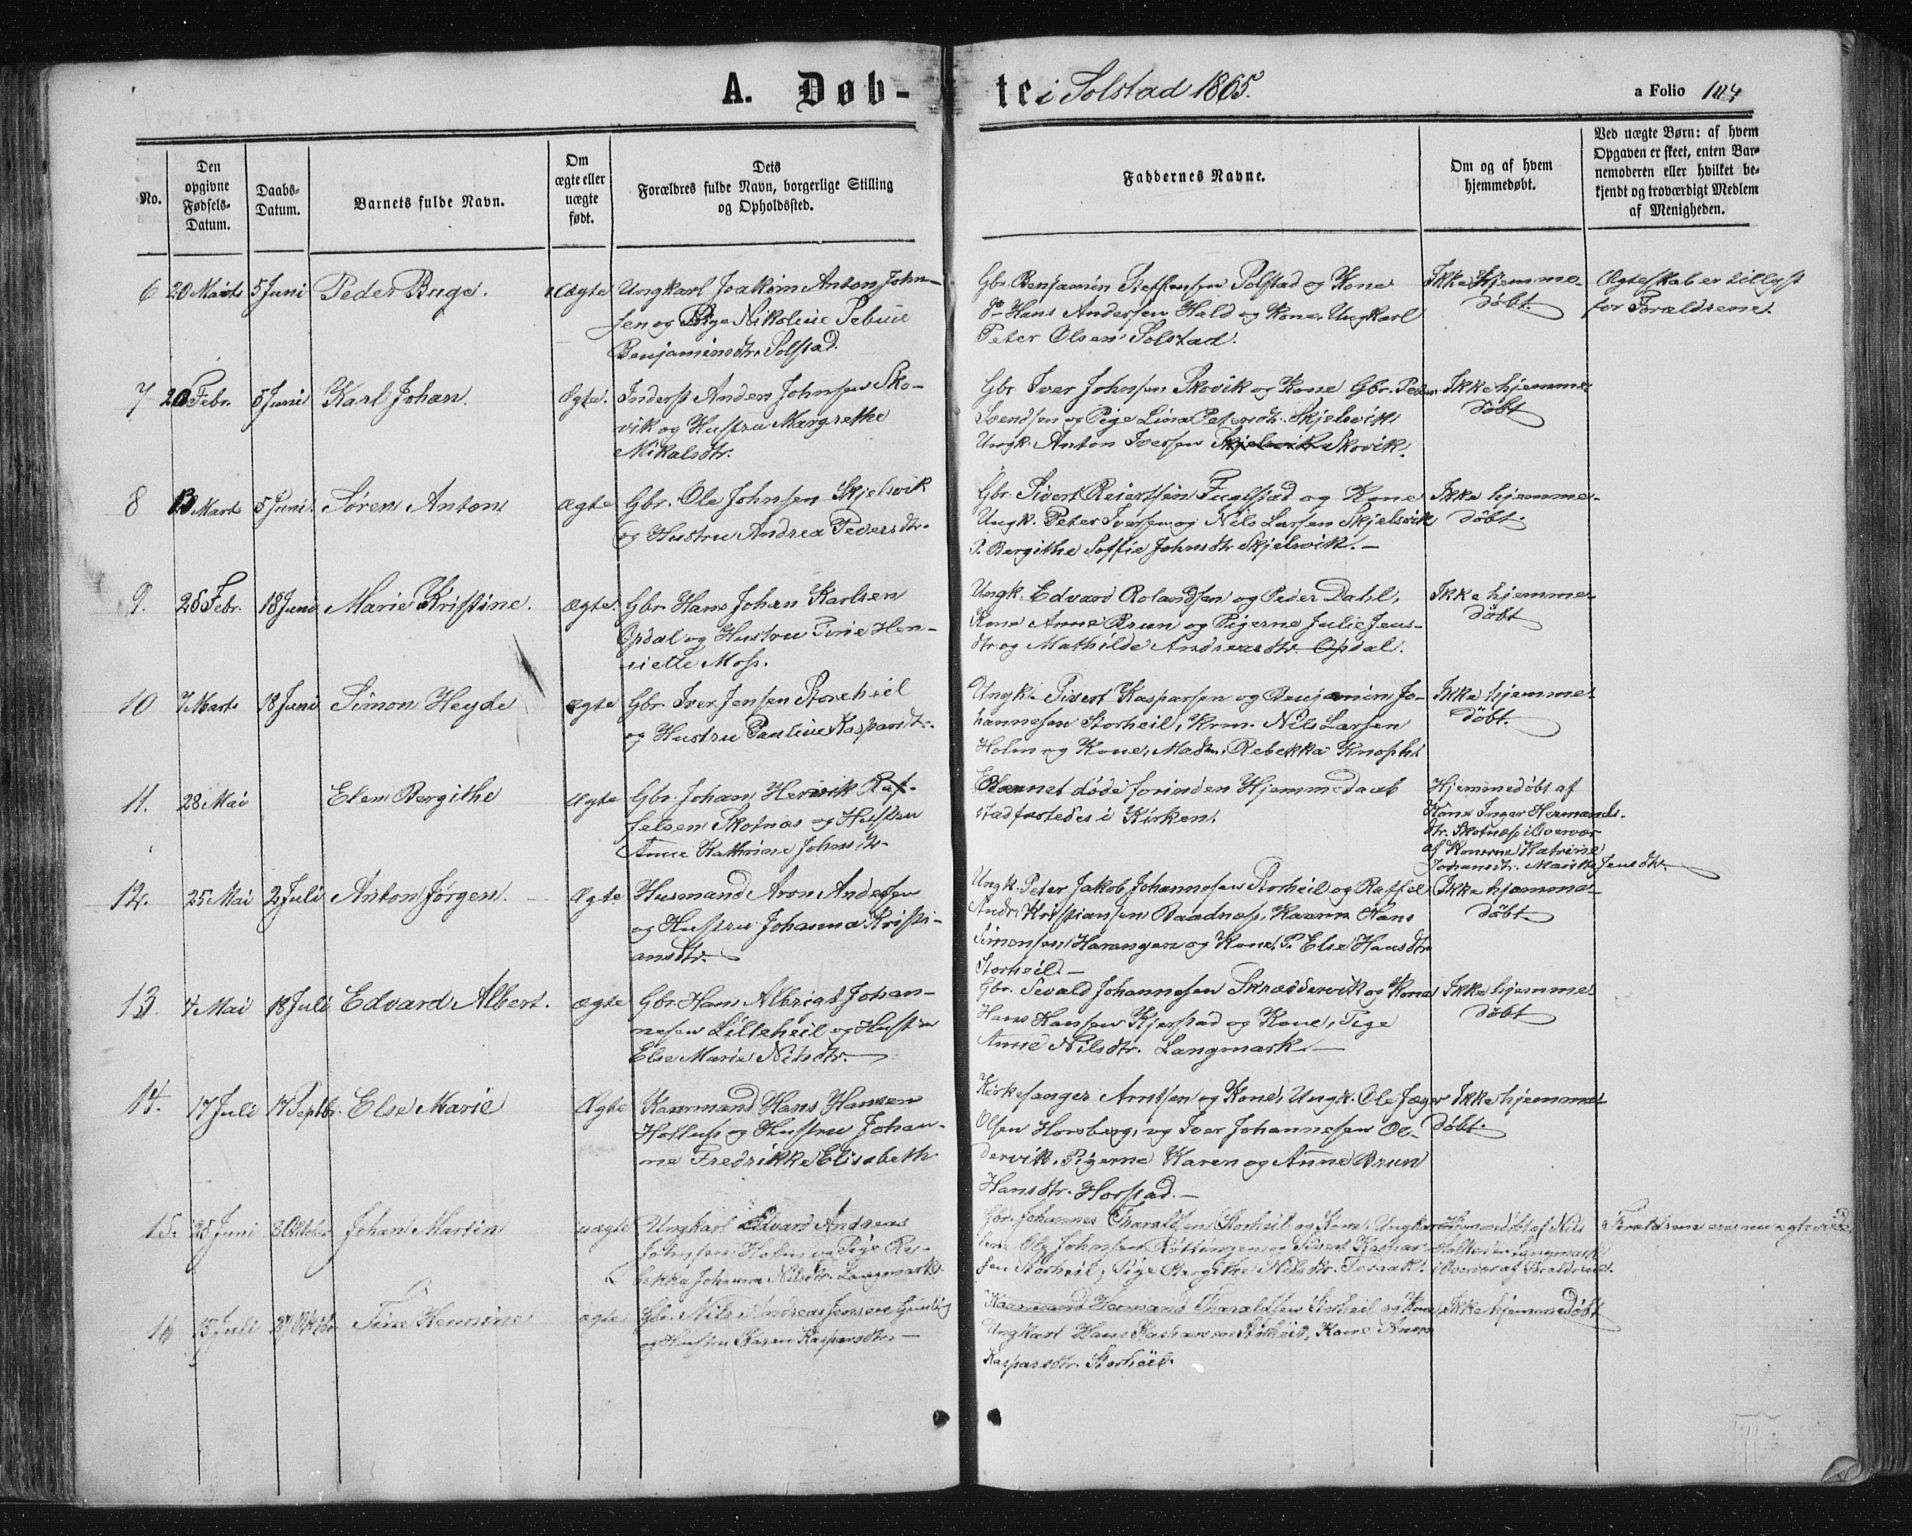 A. Døb-te i Solstad 1865.
a Folio 104
No.
Den opgivne Fødsels-Datum.
Daabs-Datum.
Barnets fulde Navn.
Om ægte eller uægte født.
Dets Forældres fulde Navn, borgerlige Stilling og Opholdssted.
Faddernes Navne.
Om og af hvem hjemmedøbt.
Ved uægte Børn: af hvem Opgaven er skeet, enten Barnemoderen eller hvilket bekjendt og troværdigt Medlem af Menigheden.
6 20 Marts 5 Juni Peder Buge. Ægte
Ungkarl Joakim Anton John-
sen og Pige Nikoline
Benjaminsdtr. Solstad.
Gbr. Benjamin Steffensen Solstad og Kone
Do Hans Andersen Hald og Kone, Ungkarl
Peter Olsen Solstad.
Ikke hjemme-
døbt.
Ægteskab er tillyst
for Forældrene.
7 20 Febr. 5 Juni Karl Johan. Ægte.
Inderst Anders Johnsen Sko-
vik og Hustru Margrethe
Nikalsdtr.
Gbr. Iver Johnsen Skovik og Kone Gbr. Peder
Svendsen og Pige Lina Petersdtr. Skjelsvik
Ungk. Anton Iversen Skjelsvik Skovik.
Ikke hjemme
døbt
8 13 Marts 5 Juni Søren Anton Ægte
Gbr. Ole Johnsen Skjelsvik
og Hustru Andrea Pedersdtr.
Gbr. Sivert Reiertsen Fuglstad og Kone
Ungk. Peter Iversen og Nils Larsen Skjelsvik
P. Bergithe Soffie Johnsdtr Skjelsvik. —
Ikke hjemme-
døbt.
9. 26 Febr. 18 Juni Marie Kristine. Ægte.
Gbr. Hans Johan Karlsen
Opdal og Hustru Hen-
riette Moss.
Ungk. Edvard Rolandsen og Peder Dahl,
Kone Anne Brun og Pigerne Julie Jens-
dtr. og Mathilde Andreasdtr. Opdal.
Ikke hjemme-
døbt
10 7 Marts 18 Juni Simon Heyde Ægte
Gbr. Iver Jensen Storeheil
og Hustru Pauline Kaspersdtr.
Ungk. Sivert Kaspersen og Benjamin Jo-
hannesen Storheil, Krm. Nils Larsen
Holm og Kone, Madm. Rebekka Knoph.
Ikke hjemme
døbt.
11. 28 Mai Elen Bergithe Ægte
Gbr. Johan Henrik Raf-
felsen Skotnæs og Hustru
Anne Kathrine Johnsdtr.
Barnet døde forinden Hjemmedaab
stadfæstedes i Kirken.
Hjemmedøbt af
Kone Inger Hermands-
dtr. Skotnæs i Overvær
af Konerne Katrine
Johansdtr. Marith Jensdtr.
12. 25 Mai 2 Juli Anton Jørgen. Ægte
Husmand Aron Andersen
og Hustru Johanna Kristi-
ansdtr.
Ungk. Peter Jakob Johannesen Storheil og Raffel
Andr. Kristiansen Baadnæs, Kaarm. Hans
Simonsen Harangen og Kone, P. Else Hansdtr.
Storheil. —
Ikke hjemme-
døbt.
13. 7 Mai 18 Juli Edvard Albert. Ægte
Gbr. Hans Albrigt Johan-
nesen Lilleheil og Hustru
Else Marie Nilsdtr.
Gbr. Sevald Johannesen Skræddervik og Kone
Hans Hansen Kjerstad og Kone, Pige
Anne Nilsdtr. Langmark. —
Ikke hjemme
døbt
14. 17 Juli 17 Septbr. Else Marie Ægte
Kaarmand Hans Hansen
og Hustru Johan-
ne Fredrikke Elisabeth
Kirkesanger Arntsen og Kone, Ungk. Ole Jæger
Olsen Horsberg, og Iver Johannesen Od-
dervik. Pigerne Karen og Anne Brun
Hansdtr. Horstad. —
Ikke hjemme
døbt.
15. 25 Juni Johan Martin uægte
Ungkarl Edvard Andreas
Johnsen Holm og Pige Re-
bekka Johanna Nilsdtr. Langmark.
Gbr. Johannes Tharaldsen Storheil og Kone, Ungkar-
lene Ole Johnsen Røttingen og Sivert Kasper-
sen Storheil, Pige Bergithe Nilsdtr.
Hjemmedøbt af Nils
Langmark
i Overvær af Forældrene.
Forældrene
16 15 Juli Tine Hermine ægte
Gbr. Nils Andreas Jensen
og Hustru Karen Kaspersdtr. —
Kaarmand Hermand Tharaldsen Storheil og Kone,
Ungkarl Hans Storheil, Kone Anne
Kaspersdtr. Storheil.
Ikke hjemmedøbt